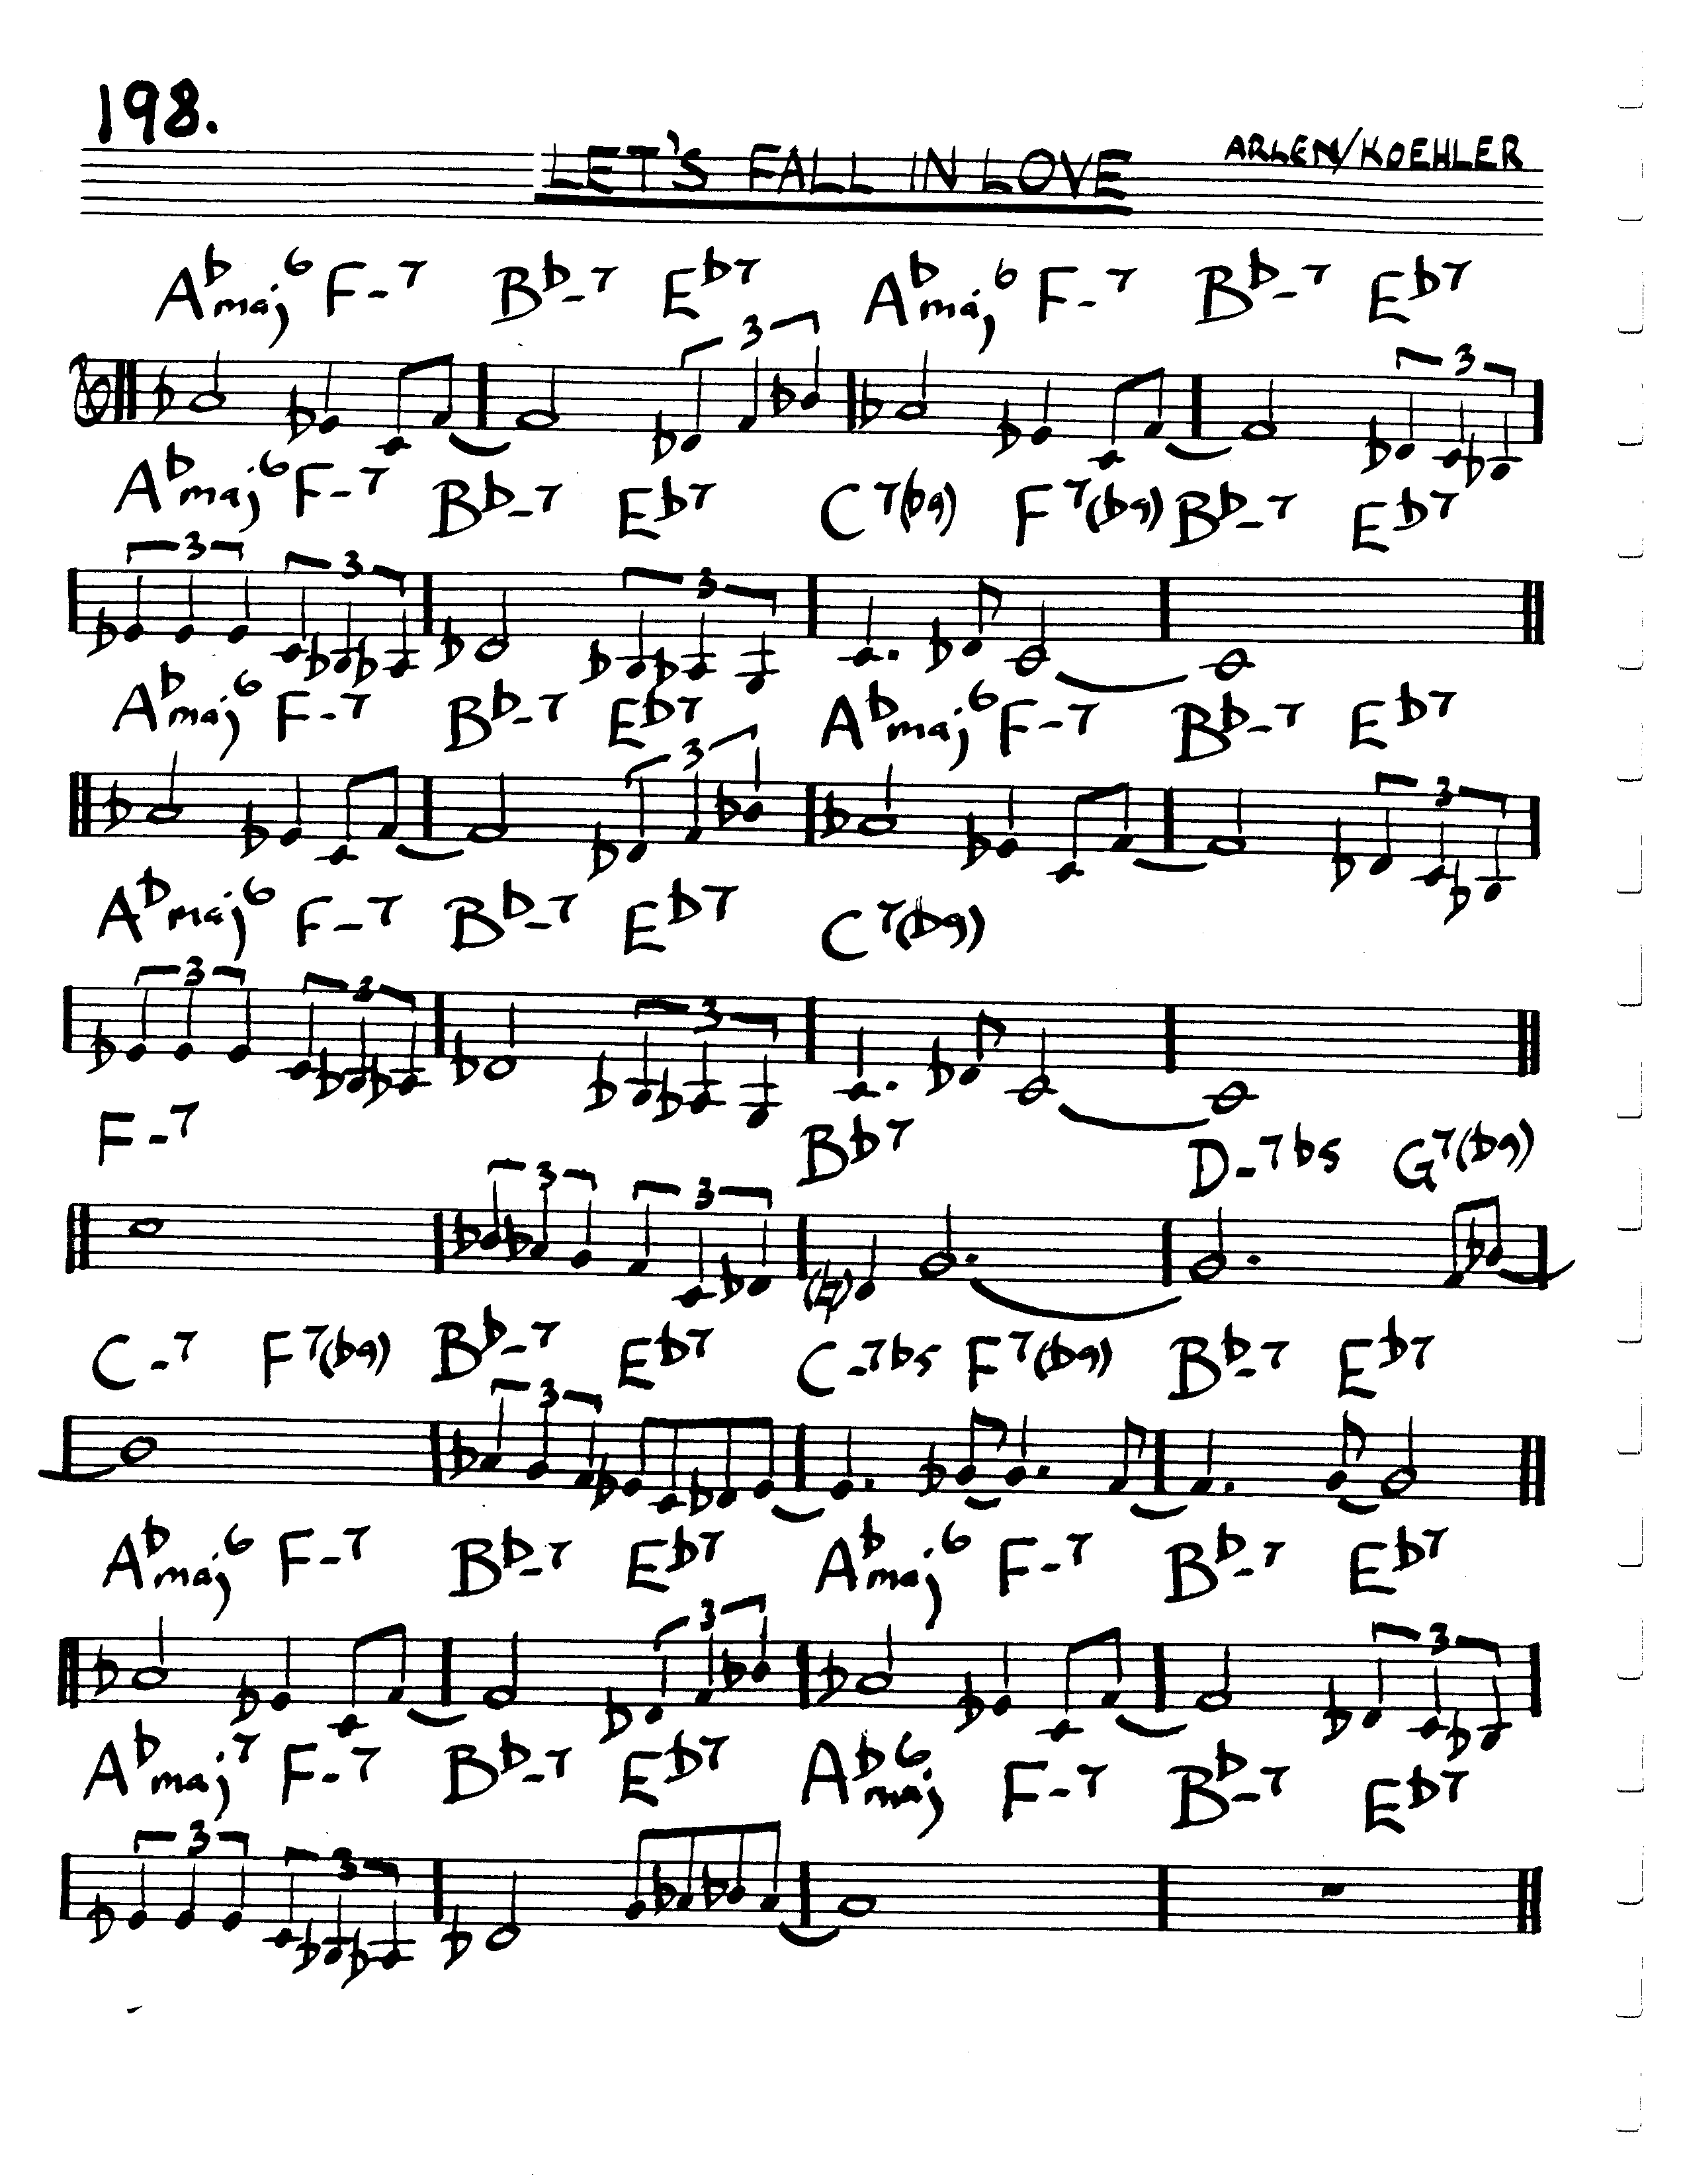 198.
LET'S FALL IN LOVE
ARLEN/KOEHLER
A♭maj6 F-7 B♭-7 E♭7 A♭maj6 F-7 B♭-7 E♭7
3 3
A♭maj6 F-7 B♭-7 E♭7 C7(♭9) F7(♭9) B♭-7 E♭7
3 3 3
A♭maj6 F-7 B♭-7 E♭7 A♭maj6 F-7 B♭-7 E♭7
3 3
A♭maj6 F-7 B♭-7 E♭7 C7(♭9)
3 3 3
F-7 B♭7 D-7♭5 G7(♭9)
3 3
(♮)
C-7 F7(♭9) B♭-7 E♭7 C-7♭5 F7(♭9) B♭-7 E♭7
3
A♭maj6 F-7 B♭-7 E♭7 A♭maj6 F-7 B♭-7 E♭7
3 3
A♭maj7 F-7 B♭-7 E♭7 A♭maj6 F-7 B♭-7 E♭7
3 3